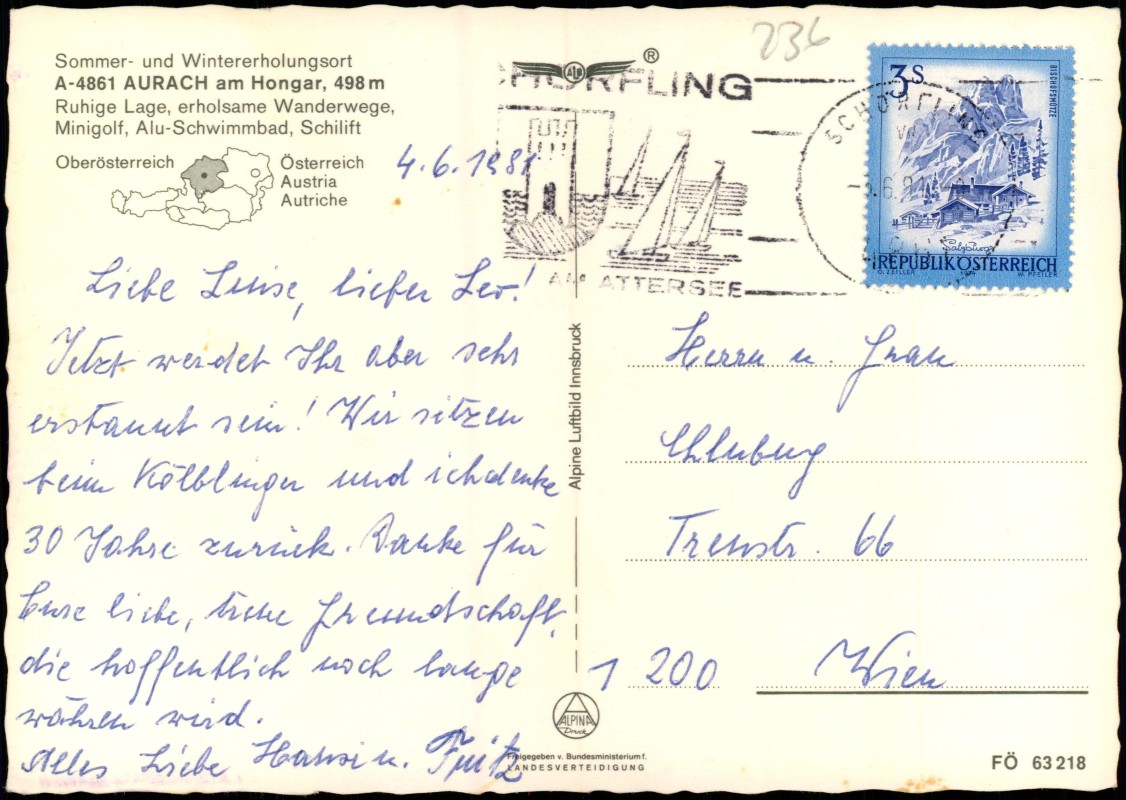 Sommer- und Wintererholungsort
A-4861 AURACH am Hongar, 498 m
Ruhige Lage, erholsame Wanderwege,
Minigolf, Alu-Schwimmbad, Schilift
Oberösterreich
Österreich
Austria
Autriche
4.6.1981
Liebe Luise, lieber Leo!
Jetzt werdet Ihr aber sehr
erstaunt sein! Wir sitzen
beim Kölblinger und ich denke
30 Jahre zurück. Danke für
Eure liebe, treue Freundschaft,
die hoffentlich noch lange
währen wird.
Alles Liebe Hansi u. Fritz
ALPINA
Druck
Freigegeben v. Bundesministerium f.
LANDESVERTEIDIGUNG
Alpine Luftbild Innsbruck
ALB
®
236
SCHÖRFLING
AM ATTERSEE
SCHÖRFLING
3 S
BISCHOFSMÜTZE
Salzburg
REPUBLIK ÖSTERREICH
O. ZEILLER W. PFEILER
Herrn u. Frau
Chluburg
Treustr. 66
1200 Wien
FÖ 63218